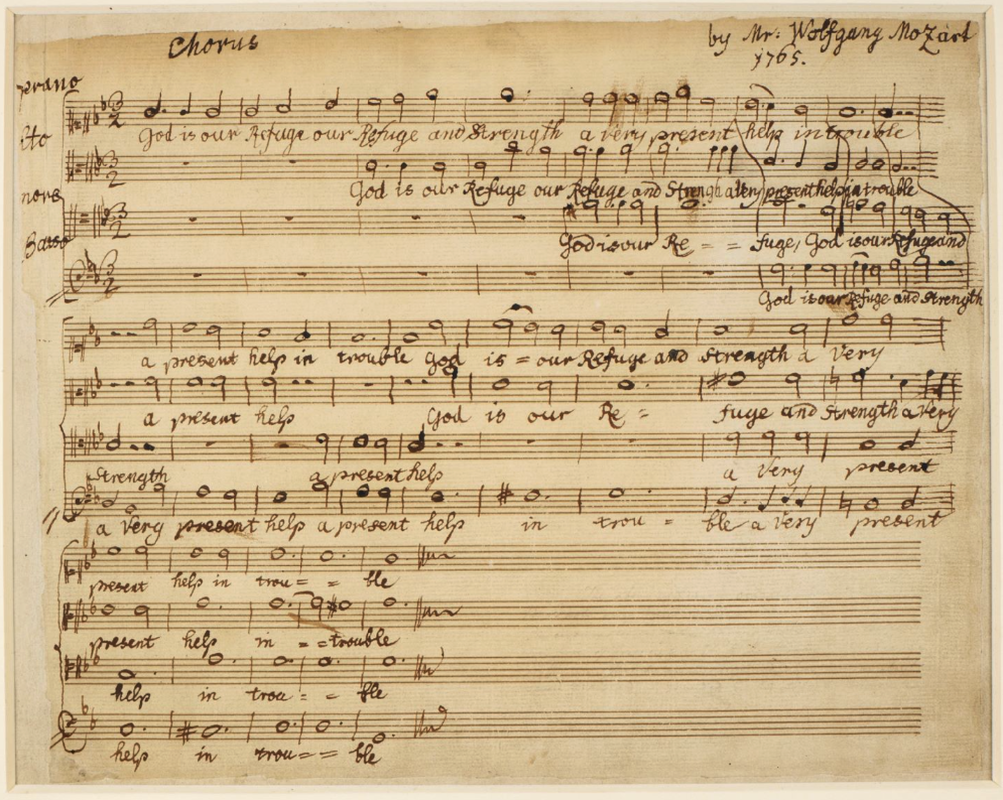 Chorus
by Mr: Wolfgang Mozart
1765.
prano
God is our Refuge our Refuge and Strength a very present help in trouble
lto
God is our Refuge our Refuge and Strengh a Very present help in trouble
nors
God is our Re = = fuge, God is our Refuge and
Basso
God is our Refuge and Strength
a present help in trouble God is = our Refuge and Strength a Very
a present help God is our Re = fuge and Strength a Very
Strength a present help a Very present
a Very present help a present help in trou = ble a Very present
present help in trou = = ble
present help in = = trouble
help in trou = = ble
help in trou = = ble